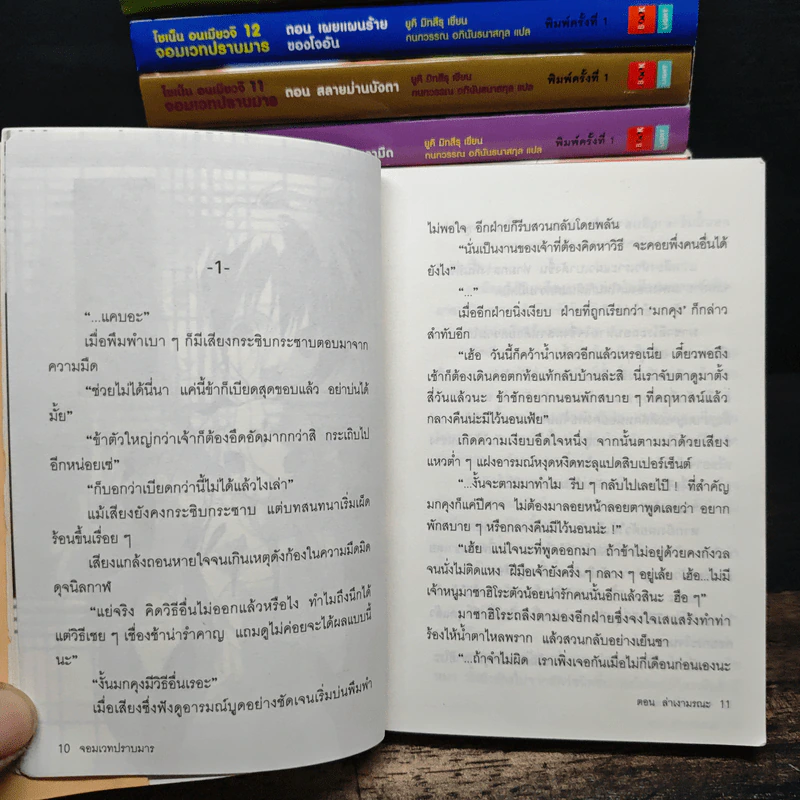 โชเน็น อนเมียวจิ 12
จอมเวทปราบมาร
ตอน เผยแผนร้าย
ของโจอัน
ยูคิ มิทสึรุ เขียน
กนกวรรณ อภินันธนาสกุล แปล
พิมพ์ครั้งที่ 1
โชเน็น อนเมียวจิ 11
จอมเวทปราบมาร
ตอน สลายม่านบังตา
ยูคิ มิทสึรุ เขียน
กนกวรรณ อภินันธนาสกุล แปล
พิมพ์ครั้งที่ 1
ยูคิ มิทสึรุ เขียน
กนกวรรณ อภินันธนาสกุล แปล
พิมพ์ครั้งที่ 1
-1-
“...แคบอะ”
เมื่อพึมพำเบา ๆ ก็มีเสียงกระซิบกระซาบตอบมาจาก
ความมืด
“ช่วยไม่ได้นี่นา แค่นี้ข้าก็เบียดสุดขอบแล้ว อย่าบ่นได้
มั้ย”
“ข้าตัวใหญ่กว่าเจ้าก็ต้องอึดอัดมากกว่าสิ กระเถิบไป
อีกหน่อยเซ่”
“ก็บอกว่าเบียดกว่านี้ไม่ได้แล้วไงเล่า”
แม้เสียงยังคงกระซิบกระซาบ แต่บทสนทนาเริ่มเผ็ด
ร้อนขึ้นเรื่อย ๆ
เสียงแกล้งถอนหายใจจนเกินเหตุดังก้องในความมืดมิด
ดุจนิลกาฬ
“แย่จริง คิดวิธีอื่นไม่ออกแล้วหรือไง ทำไมถึงนึกได้
แต่วิธีเชย ๆ เชื่องช้าน่ารำคาญ แถมดูไม่ค่อยจะได้ผลแบบนี้
นะ”
“งั้นมกคุงมีวิธีอื่นเรอะ”
เมื่อเสียงซึ่งฟังดูอารมณ์บูดอย่างชัดเจนเริ่มบ่นพึมพำ
10 จอมเวทปราบมาร
ไม่พอใจ อีกฝ่ายก็รีบสวนกลับโดยพลัน
“นั่นเป็นงานของเจ้าที่ต้องคิดหาวิธี จะคอยพึ่งคนอื่นได้
ยังไง”
“...”
เมื่ออีกฝ่ายนิ่งเงียบ ฝ่ายที่ถูกเรียกว่า ‘มกคุง’ ก็กล่าว
สำทับอีก
“เฮ้อ วันนี้ก็คว้าน้ำเหลวอีกแล้วเหรอเนี่ย เดี๋ยวพอถึง
เช้าก็ต้องเดินคอตกท้อแท้กลับบ้านล่ะสิ นี่เราจับตาดูมาตั้ง
สี่วันแล้วนะ ข้าชักอยากนอนพักสบาย ๆ ที่คฤหาสน์แล้ว
กลางคืนน่ะมีไว้นอนเฟ้ย”
เกิดความเงียบอึดใจหนึ่ง จากนั้นตามมาด้วยเสียง
แหวต่ำ ๆ แฝงอารมณ์หงุดหงิดทะลุแปดสิบเปอร์เซ็นต์
“...งั้นจะตามมาทำไม รีบ ๆ กลับไปเลยไป๊ ! ที่สำคัญ
มกคุงก็แค่ปีศาจ ไม่ต้องมาลอยหน้าลอยตาพูดเลยว่า อยาก
พักสบาย ๆ หรือกลางคืนมีไว้นอนน่ะ !”
“เฮ้ย แน่ใจนะที่พูดออกมา ถ้าข้าไม่อยู่ด้วยคงกังวล
จนนั่งไม่ติดแหง ฝีมือเจ้ายังครึ่ง ๆ กลาง ๆ อยู่เล้ย เฮ้อ...ไม่มี
เจ้าหนูมาซาฮิโระตัวน้อยน่ารักคนนั้นอีกแล้วสินะ ฮือ ๆ”
มาซาฮิโระถลึงตามองอีกฝ่ายซึ่งจงใจเสแสร้งทำท่า
ร้องไห้น้ำตาไหลพราก แล้วสวนกลับอย่างเย็นชา
“...ถ้าจำไม่ผิด เราเพิ่งเจอกันเมื่อไม่กี่เดือนก่อนเองนะ
ตอน ล่าเงามรณะ 11